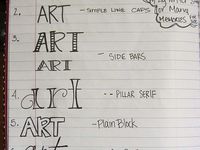 2. ART - SIMPLE LINE CAPS
3. ART
ART - SIDE BARS
4. art -- PILLAR SERIF
5. ART - Plain Block
or Many
Memories